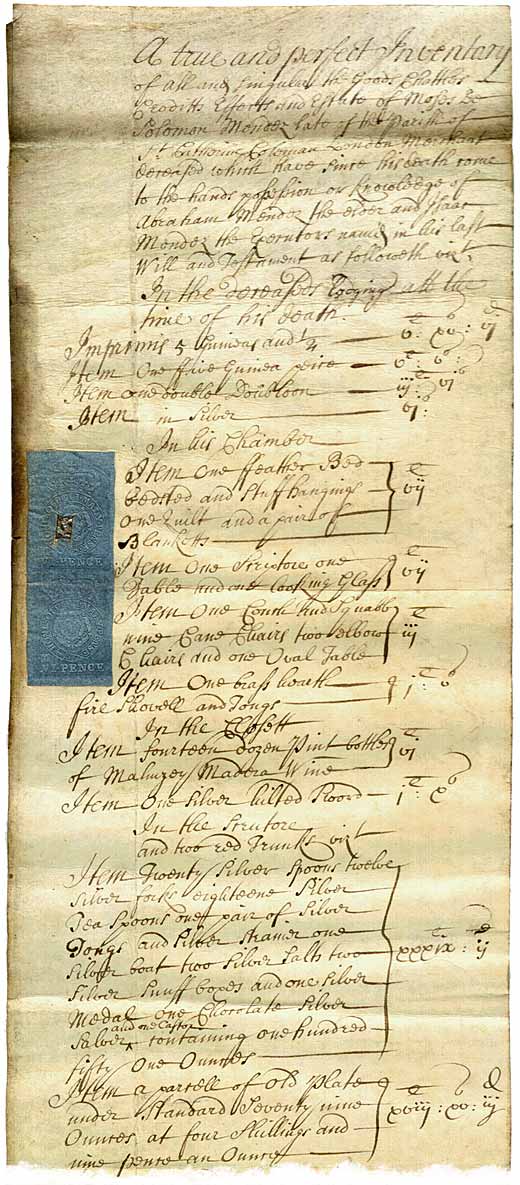 A true and perfect Inventory
of all and singular the Goods Chattles
Creditts Effects and Estate of Moses De
Solomon Mendez late of the Parish of
St. Catherine Coleman London Merchant
deceased which have since his death come
to the hands possession or knowledge of
Abraham Mendez the elder and Isaac
Mendez the Executors named in his last
Will and Testament as followeth vizt.
In the deceaseds Lodgings att the
time of his death.
Imprimis 5 Guineas and
Item One five Guinea peice
Item one double Doubloon
Item in Silver
In his Chamber
Item One feather Bed
bedsted and Stuff hangings
One Quilt and a pair of
Blanketts vij
Item One Scriptore one
Table and one Looking Glass vij
Item One Couch and Squabb
nine Cane Chairs two elbow
Chairs and one Oval Table iij
Item One brass hearth
fire Shovell and Tongs
In the Clossett
Item fourteen dozen Pint bottles
of Malmzey Madera Wine vj
Item One Silver hilted Sword i : x
In the Scrutore
and two red Trunks vizt
Item Twenty Silver Spoons twelve
Silver forks eighteene Silver
Tea Spoons one pair of Silver
Tongs and Silver Strainer one
Silver boat two Silver Salts two
Silver Snuff boxes and one Silver
Medal one Chocolate Silver
and one Castor
Salver containing one hundred
fifty One Ounces xxxix : ij
Item a parcell of old Plate
under Standard Seventy nine
Ounces at four Shillings and
nine pence an Ounce xviij : xv : iij
VI PENCE